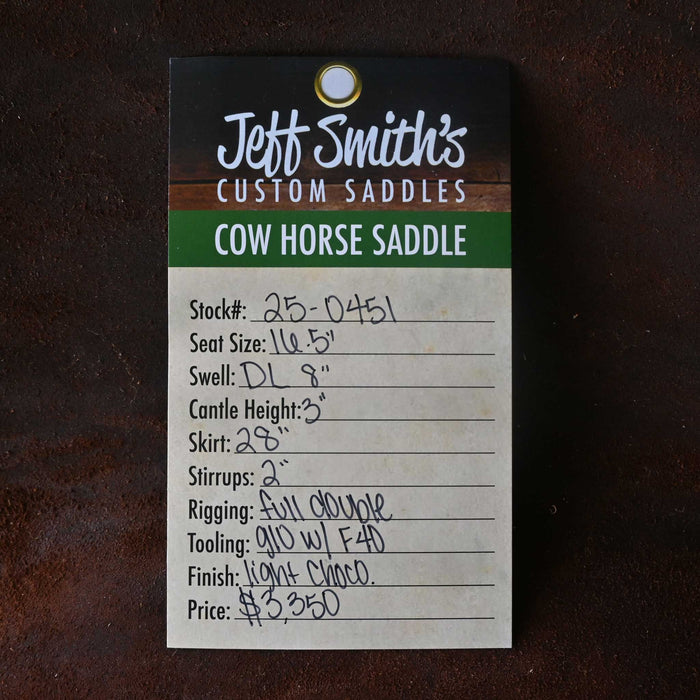 Jeff Smith's
CUSTOM SADDLES
COW HORSE SADDLE
Stock#: 25-0451
Seat Size: 16.5"
Swell: DL 8"
Cantle Height: 3"
Skirt: 28"
Stirrups: 2"
Rigging: full double
Tooling: g10 w/ F40
Finish: light choco.
Price: $3,350